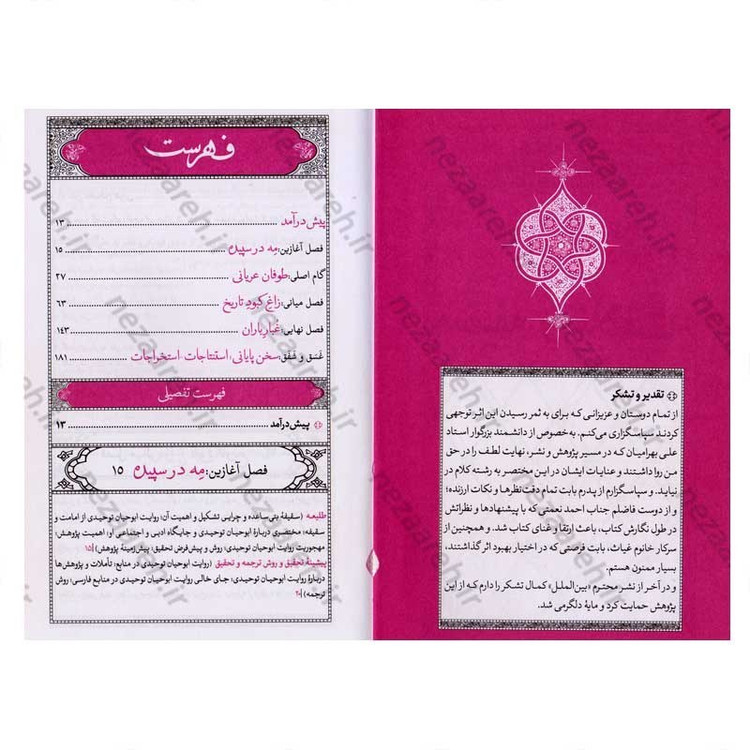 تقدیر و تشکر
از تمام دوستان و عزیزانی که برای به ثمر رسیدن این اثر توجهی
کردند سپاسگزاری می‌کنم. به‌خصوص از دانشمند بزرگوار استاد
علی بهرامیان که در مسیر پژوهش و نشر، نهایت لطف را در حق
من روا داشتند و عنایات ایشان در این مختصر به رشته کلام در
نیاید. و سپاسگزارم از پدرم بابت تمام دقت‌نظرها و نکات ارزنده؛
و از دوست فاضلم جناب احمد نعمتی که با پیشنهادها و نظراتش
در طول نگارش کتاب، باعث ارتقا و غنای کتاب شد. و همچنین از
سرکار خانوم غیاث، بابت فرصتی که در اختیار بهبود اثر گذاشتند،
بسیار ممنون هستم.
و در آخر از نشر محترم «بین‌الملل» کمال تشکر را دارم که از این
پژوهش حمایت کرد و مایهٔ دلگرمی شد.
فهرست
پیش‌درآمد ۱۳
فصل آغازین: مه در سپیده ۱۵
گام اصلی: طوفان عریانی ۲۷
فصل میانی: زاغ کبود تاریخ ۶۳
فصل نهایی: غبار باران ۱۴۳
غسق و شفق: سخن پایانی، استنتاجات، استخراجات ۱۸۱
فهرست تفصیلی
پیش‌درآمد ۱۳
فصل آغازین: مه در سپیده ۱۵
طلیعه (سقیفهٔ بنی‌ساعده و چرایی تشکیل و اهمیت آن؛ روایت ابوحیان توحیدی از امامت و
سقیفه؛ مختصری دربارهٔ ابوحیان توحیدی و جایگاه ادبی و اجتماعی او؛ اهمیت پژوهش؛
مهجوریت روایت ابوحیان توحیدی؛ روش و پیش‌فرض تحقیق؛ پیش‌زمینهٔ پژوهش) |۱۵
پیشینهٔ تحقیق و روش ترجمه و تحقیق (روایت ابوحیان توحیدی در منابع؛ تأملات و پژوهش‌ها
دربارهٔ روایت ابوحیان توحیدی؛ جای خالی روایت ابوحیان توحیدی در منابع فارسی؛ روش
ترجمه) |۲۰
nezaareh.ir